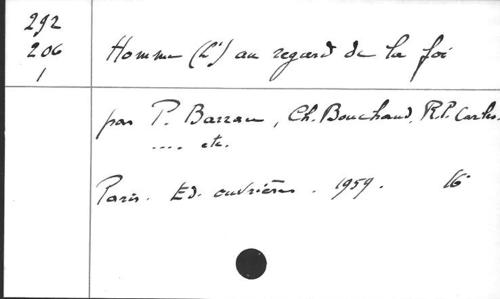 292
206
1
Homme (L') au regard de la foi
par P. Barrau, Ch. Bouchaud, R.P. Carles.
.... etc.
Paris. Ed. ouvrières. 1959. 16°